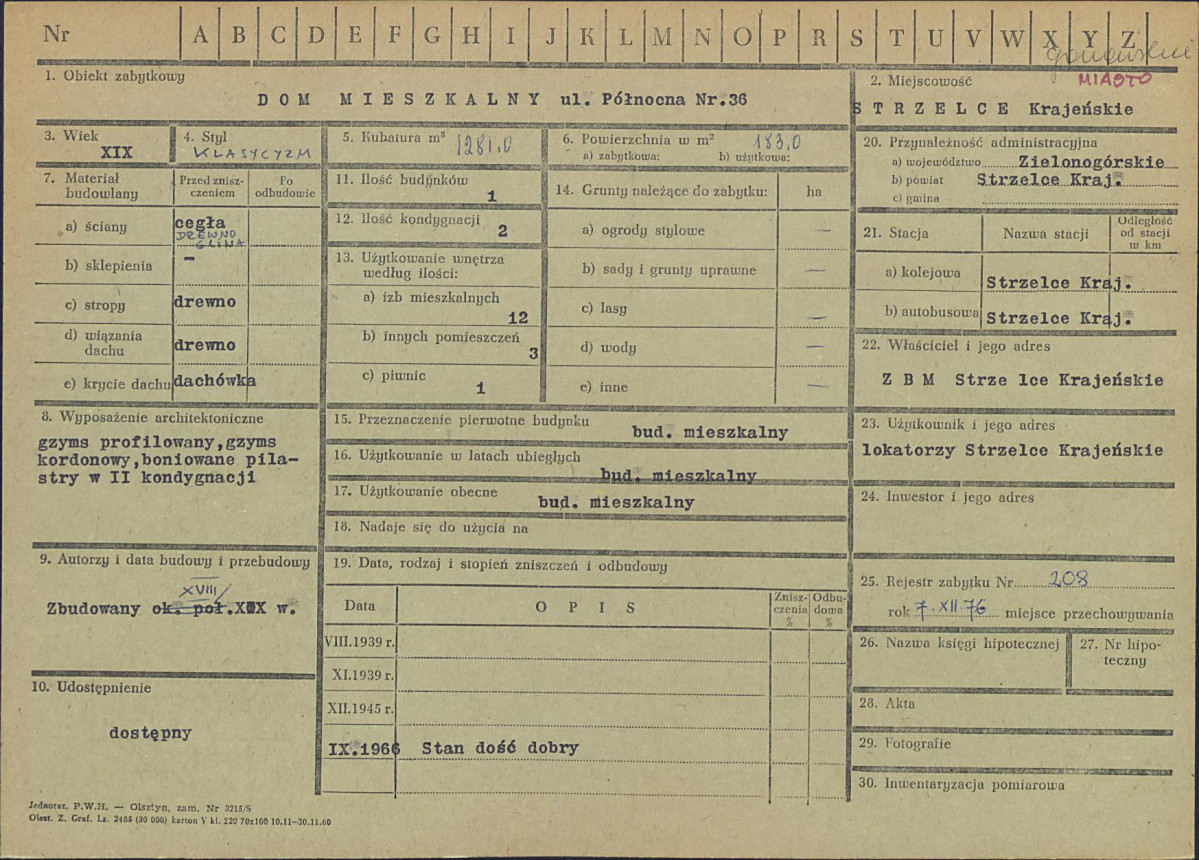 Nr A B C D E F G H I J K L M N O P R S T U V W X Y Z
1. Obiekt zabytkowy
DOM MIESZKALNY ul. Północna Nr.36
2. Miejscowość
MIASTO
STRZELCE Krajeńskie
3. Wiek
XIX
4. Styl
KLASYCYZM
5. Kubatura m³ 1281,0
6. Powierzchnia w m² 183,0
a) zabytkowa: b) użytkowa:
20. Przynależność administracyjna
a) województwo Zielonogórskie
b) powiat Strzelce Kraj.
c) gmina
7. Materiał budowlany
Przed zniszczeniem
Po odbudowie
a) ściany cegła
DREWNO
GLINA
b) sklepienia –
c) stropy drewno
d) wiązania dachu drewno
e) krycie dachu dachówka
11. Ilość budynków
1
12. Ilość kondygnacji
2
13. Użytkowanie wnętrza
według ilości:
a) izb mieszkalnych
12
b) innych pomieszczeń
3
c) piwnic
1
14. Grunty należące do zabytku: ha
a) ogrody stylowe —
b) sady i grunty uprawne —
c) lasy —
d) wody —
e) inne —
21. Stacja
Nazwa stacji
Odległość
od stacji
w km
a) kolejowa Strzelce Kraj.
b) autobusowa Strzelce Kraj.
22. Właściciel i jego adres
Z B M Strze lce Krajeńskie
8. Wyposażenie architektoniczne
gzyms profilowany,gzyms
kordonowy,boniowane pila-
stry w II kondygnacji
15. Przeznaczenie pierwotne budynku
bud. mieszkalny
16. Użytkowanie w latach ubiegłych
bud. mieszkalny
17. Użytkowanie obecne
bud. mieszkalny
18. Nadaje się do użycia na
23. Użytkownik i jego adres
lokatorzy Strzelce Krajeńskie
24. Inwestor i jego adres
9. Autorzy i data budowy i przebudowy
XVIII/
Zbudowany ok. poł.XIX w.
10. Udostępnienie
dostępny
19. Data, rodzaj i stopień zniszczeń i odbudowy
Data
OPIS
Znisz-
czenia
%
Odbu-
dowa
%
VIII.1939 r.
XI.1939 r.
XII.1945 r.
IX.1966 Stan dość dobry
25. Rejestr zabytku Nr 208
rok 7.XII.76 miejsce przechowywania
26. Nazwa księgi hipotecznej
27. Nr hipo-
teczny
28. Akta
29. Fotografie
30. Inwentaryzacja pomiarowa
Jednoraz. P.W.H. — Olsztyn, zam. Nr 3215/S
Olszt. Z. Graf. Lz. 2485 (30 000) karton V kl. 220 70x100 10.11—30.11.60